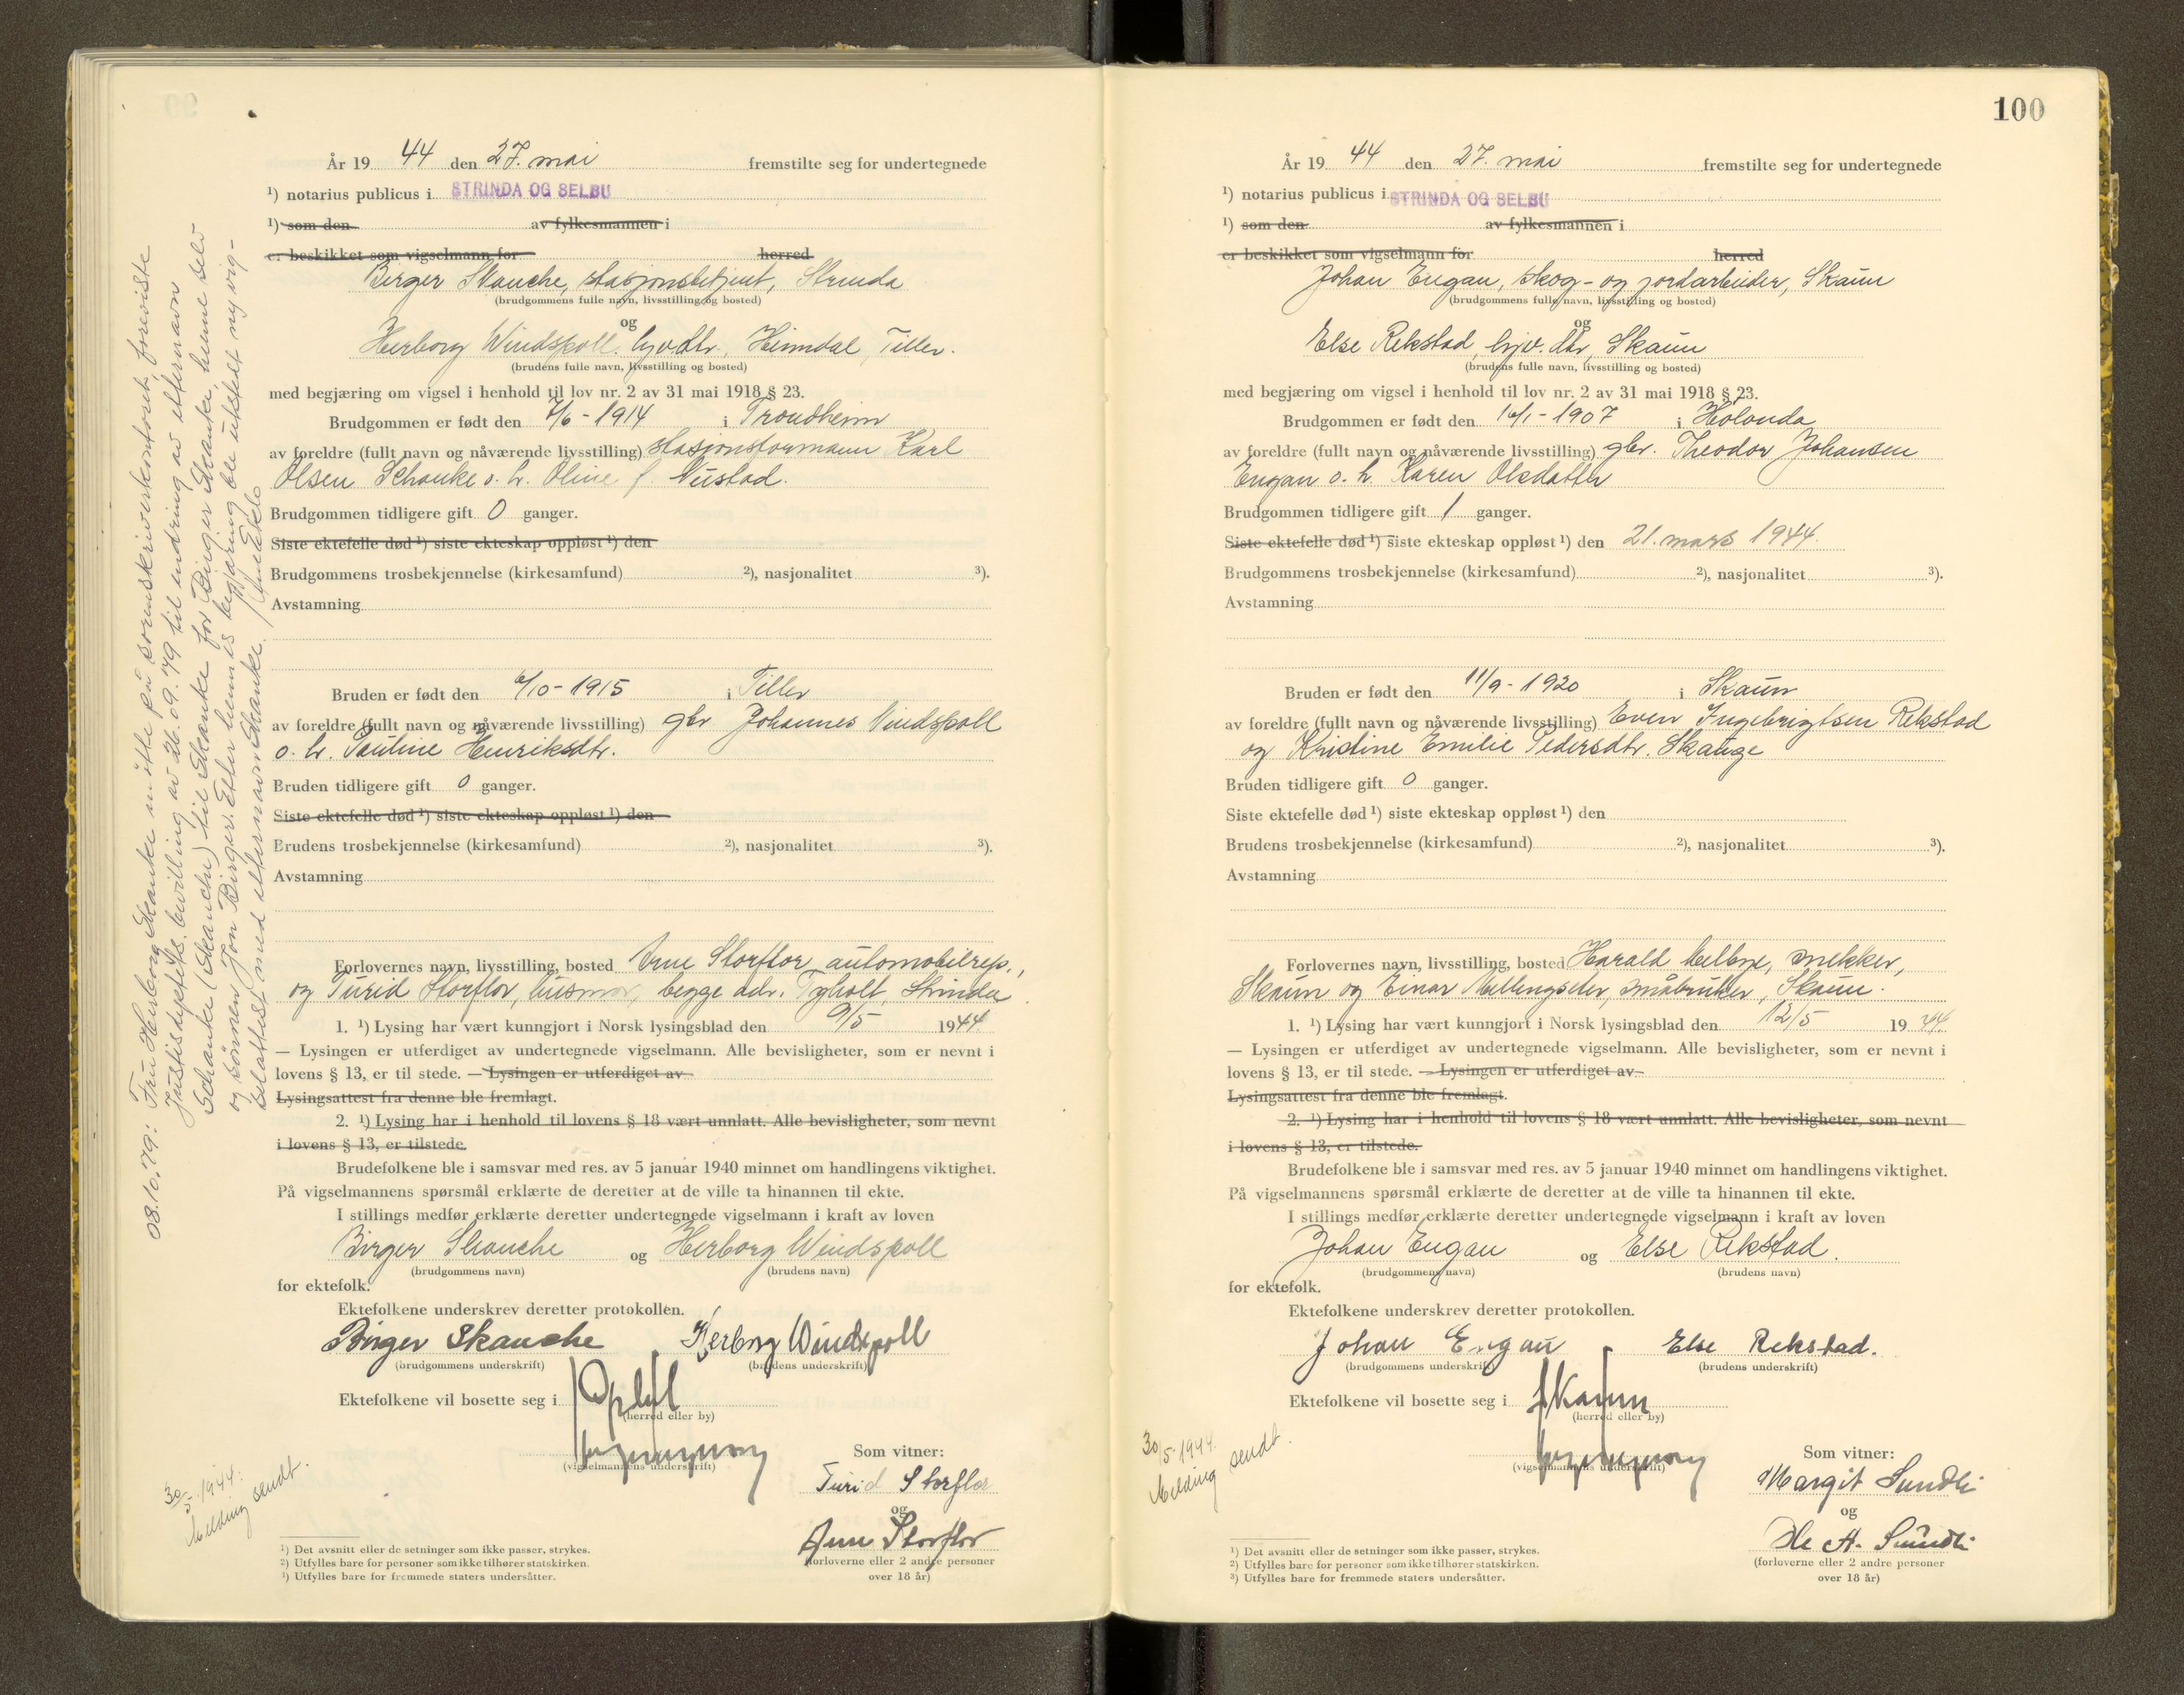 År 19 44 den 27. mai fremstilte seg for undertegnede
¹) notarius publicus i STRINDA OG SELBU
¹) som den av fylkesmannen i
er beskikket som vigselmann for herred
Birger Skanche, stasjonsbetjent, Strinda
(brudgommens fulle navn, livsstilling og bosted)
og
Herborg Windspoll, hjv.dtr, Heimdal, Tiller.
(brudens fulle navn, livsstilling og bosted)
med begjæring om vigsel i henhold til lov nr. 2 av 31 mai 1918 § 23.
Brudgommen er født den 7/6 - 1914 i Trondheim
av foreldre (fullt navn og nåværende livsstilling) stasjonsformann Karl
Olsen Schanke o. h. Oline f. Nustad.
Brudgommen tidligere gift 0 ganger.
Siste ektefelle død ¹) siste ekteskap oppløst ¹) den
Brudgommens trosbekjennelse (kirkesamfund) ²), nasjonalitet ³).
Avstamning
Bruden er født den 6/10 - 1915 i Tiller
av foreldre (fullt navn og nåværende livsstilling) gbr Johannes Vindspoll
o. h. Pauline Henriksdtr.
Bruden tidligere gift 0 ganger.
Siste ektefelle død ¹) siste ekteskap oppløst ¹) den
Brudens trosbekjennelse (kirkesamfund) ²), nasjonalitet ³).
Avstamning
Forlovernes navn, livsstilling, bosted Arne Storflor, automobilrep.,
og Turid Storflor, husmor, begge adr. Tyholt, Strinda.
1. ¹) Lysing har vært kunngjort i Norsk lysingsblad den 9/5 1944
— Lysingen er utferdiget av undertegnede vigselmann. Alle bevisligheter, som er nevnt i
lovens § 13, er til stede. — Lysingen er utferdiget av
Lysingsattest fra denne ble fremlagt.
2. ¹) Lysing har i henhold til lovens § 18 vært unnlatt. Alle bevisligheter, som nevnt
i lovens § 13, er tilstede.
Brudefolkene ble i samsvar med res. av 5 januar 1940 minnet om handlingens viktighet.
På vigselmannens spørsmål erklærte de deretter at de ville ta hinannen til ekte.
I stillings medfør erklærte deretter undertegnede vigselmann i kraft av loven
Birger Skanche og Herborg Windspoll
(brudgommens navn) (brudens navn)
for ektefolk.
Ektefolkene underskrev deretter protokollen.
Birger Skanche Herborg Windspoll
(brudgommens underskrift) (brudens underskrift)
Ektefolkene vil bosette seg i
(herred eller by)
Som vitner:
(vigselmannens underskrift)
Turid Storflor
og
Arne Storflor
(forloverne eller 2 andre personer
over 18 år)
30/5 1944.
Melding sendt.
¹) Det avsnitt eller de setninger som ikke passer, strykes.
²) Utfylles bare for personer som ikke tilhører statskirken.
³) Utfylles bare for fremmede staters undersåtter.
08.10.79: Fru Herborg Skanke møtte på sorenskriverkontoret, foreviste
Justisdeptets. bevilling av 26.09.79 til endring av etternavn
Schanke (Skanche) til Skanke for Birger Skanke, henne selv
og sønnen Jon Birger. Etter hennes begjæring ble utstedt ny vig-
selattest med etternavn Skanke.
100
År 19 44 den 27. mai fremstilte seg for undertegnede
¹) notarius publicus i STRINDA OG SELBU
¹) som den av fylkesmannen i
er beskikket som vigselmann for herred
Johan Engan, skog- og jordarbeider, Skaun
(brudgommens fulle navn, livsstilling og bosted)
og
Else Rekstad, hjv. dtr, Skaun
(brudens fulle navn, livsstilling og bosted)
med begjæring om vigsel i henhold til lov nr. 2 av 31 mai 1918 § 23.
Brudgommen er født den 16/1 - 1907 i Hølonda
av foreldre (fullt navn og nåværende livsstilling) gbr. Theodor Johansen
Engan o. h. Karen Olsdatter
Brudgommen tidligere gift 1 ganger.
Siste ektefelle død ¹) siste ekteskap oppløst ¹) den 21. mars 1944.
Brudgommens trosbekjennelse (kirkesamfund) ²), nasjonalitet ³).
Avstamning
Bruden er født den 11/9 - 1920 i Skaun
av foreldre (fullt navn og nåværende livsstilling) Even Ingebrigtsen Rekstad
og Kristine Emilie Pedersdtr. Skauge
Bruden tidligere gift 0 ganger.
Siste ektefelle død ¹) siste ekteskap oppløst ¹) den
Brudens trosbekjennelse (kirkesamfund) ²), nasjonalitet ³).
Avstamning
Forlovernes navn, livsstilling, bosted Harald Melbye, snekker,
Skaun og Einar Mellingseter, småbruker, Skaun.
1. ¹) Lysing har vært kunngjort i Norsk lysingsblad den 12/5 19 44
— Lysingen er utferdiget av undertegnede vigselmann. Alle bevisligheter, som er nevnt i
lovens § 13, er til stede. — Lysingen er utferdiget av
Lysingsattest fra denne ble fremlagt.
2. ¹) Lysing har i henhold til lovens § 18 vært unnlatt. Alle bevisligheter, som nevnt
i lovens § 13, er tilstede.
Brudefolkene ble i samsvar med res. av 5 januar 1940 minnet om handlingens viktighet.
På vigselmannens spørsmål erklærte de deretter at de ville ta hinannen til ekte.
I stillings medfør erklærte deretter undertegnede vigselmann i kraft av loven
Johan Engan og Else Rekstad.
(brudgommens navn) (brudens navn)
for ektefolk.
Ektefolkene underskrev deretter protokollen.
Johan Engan Else Rekstad.
(brudgommens underskrift) (brudens underskrift)
Ektefolkene vil bosette seg i Skaun
(herred eller by)
Som vitner:
(vigselmannens underskrift)
Margit Sundli
og
Ole A. Sundli
(forloverne eller 2 andre personer
over 18 år)
30/5 1944.
Melding sendt.
¹) Det avsnitt eller de setninger som ikke passer, strykes.
²) Utfylles bare for personer som ikke tilhører statskirken.
³) Utfylles bare for fremmede staters undersåtter.